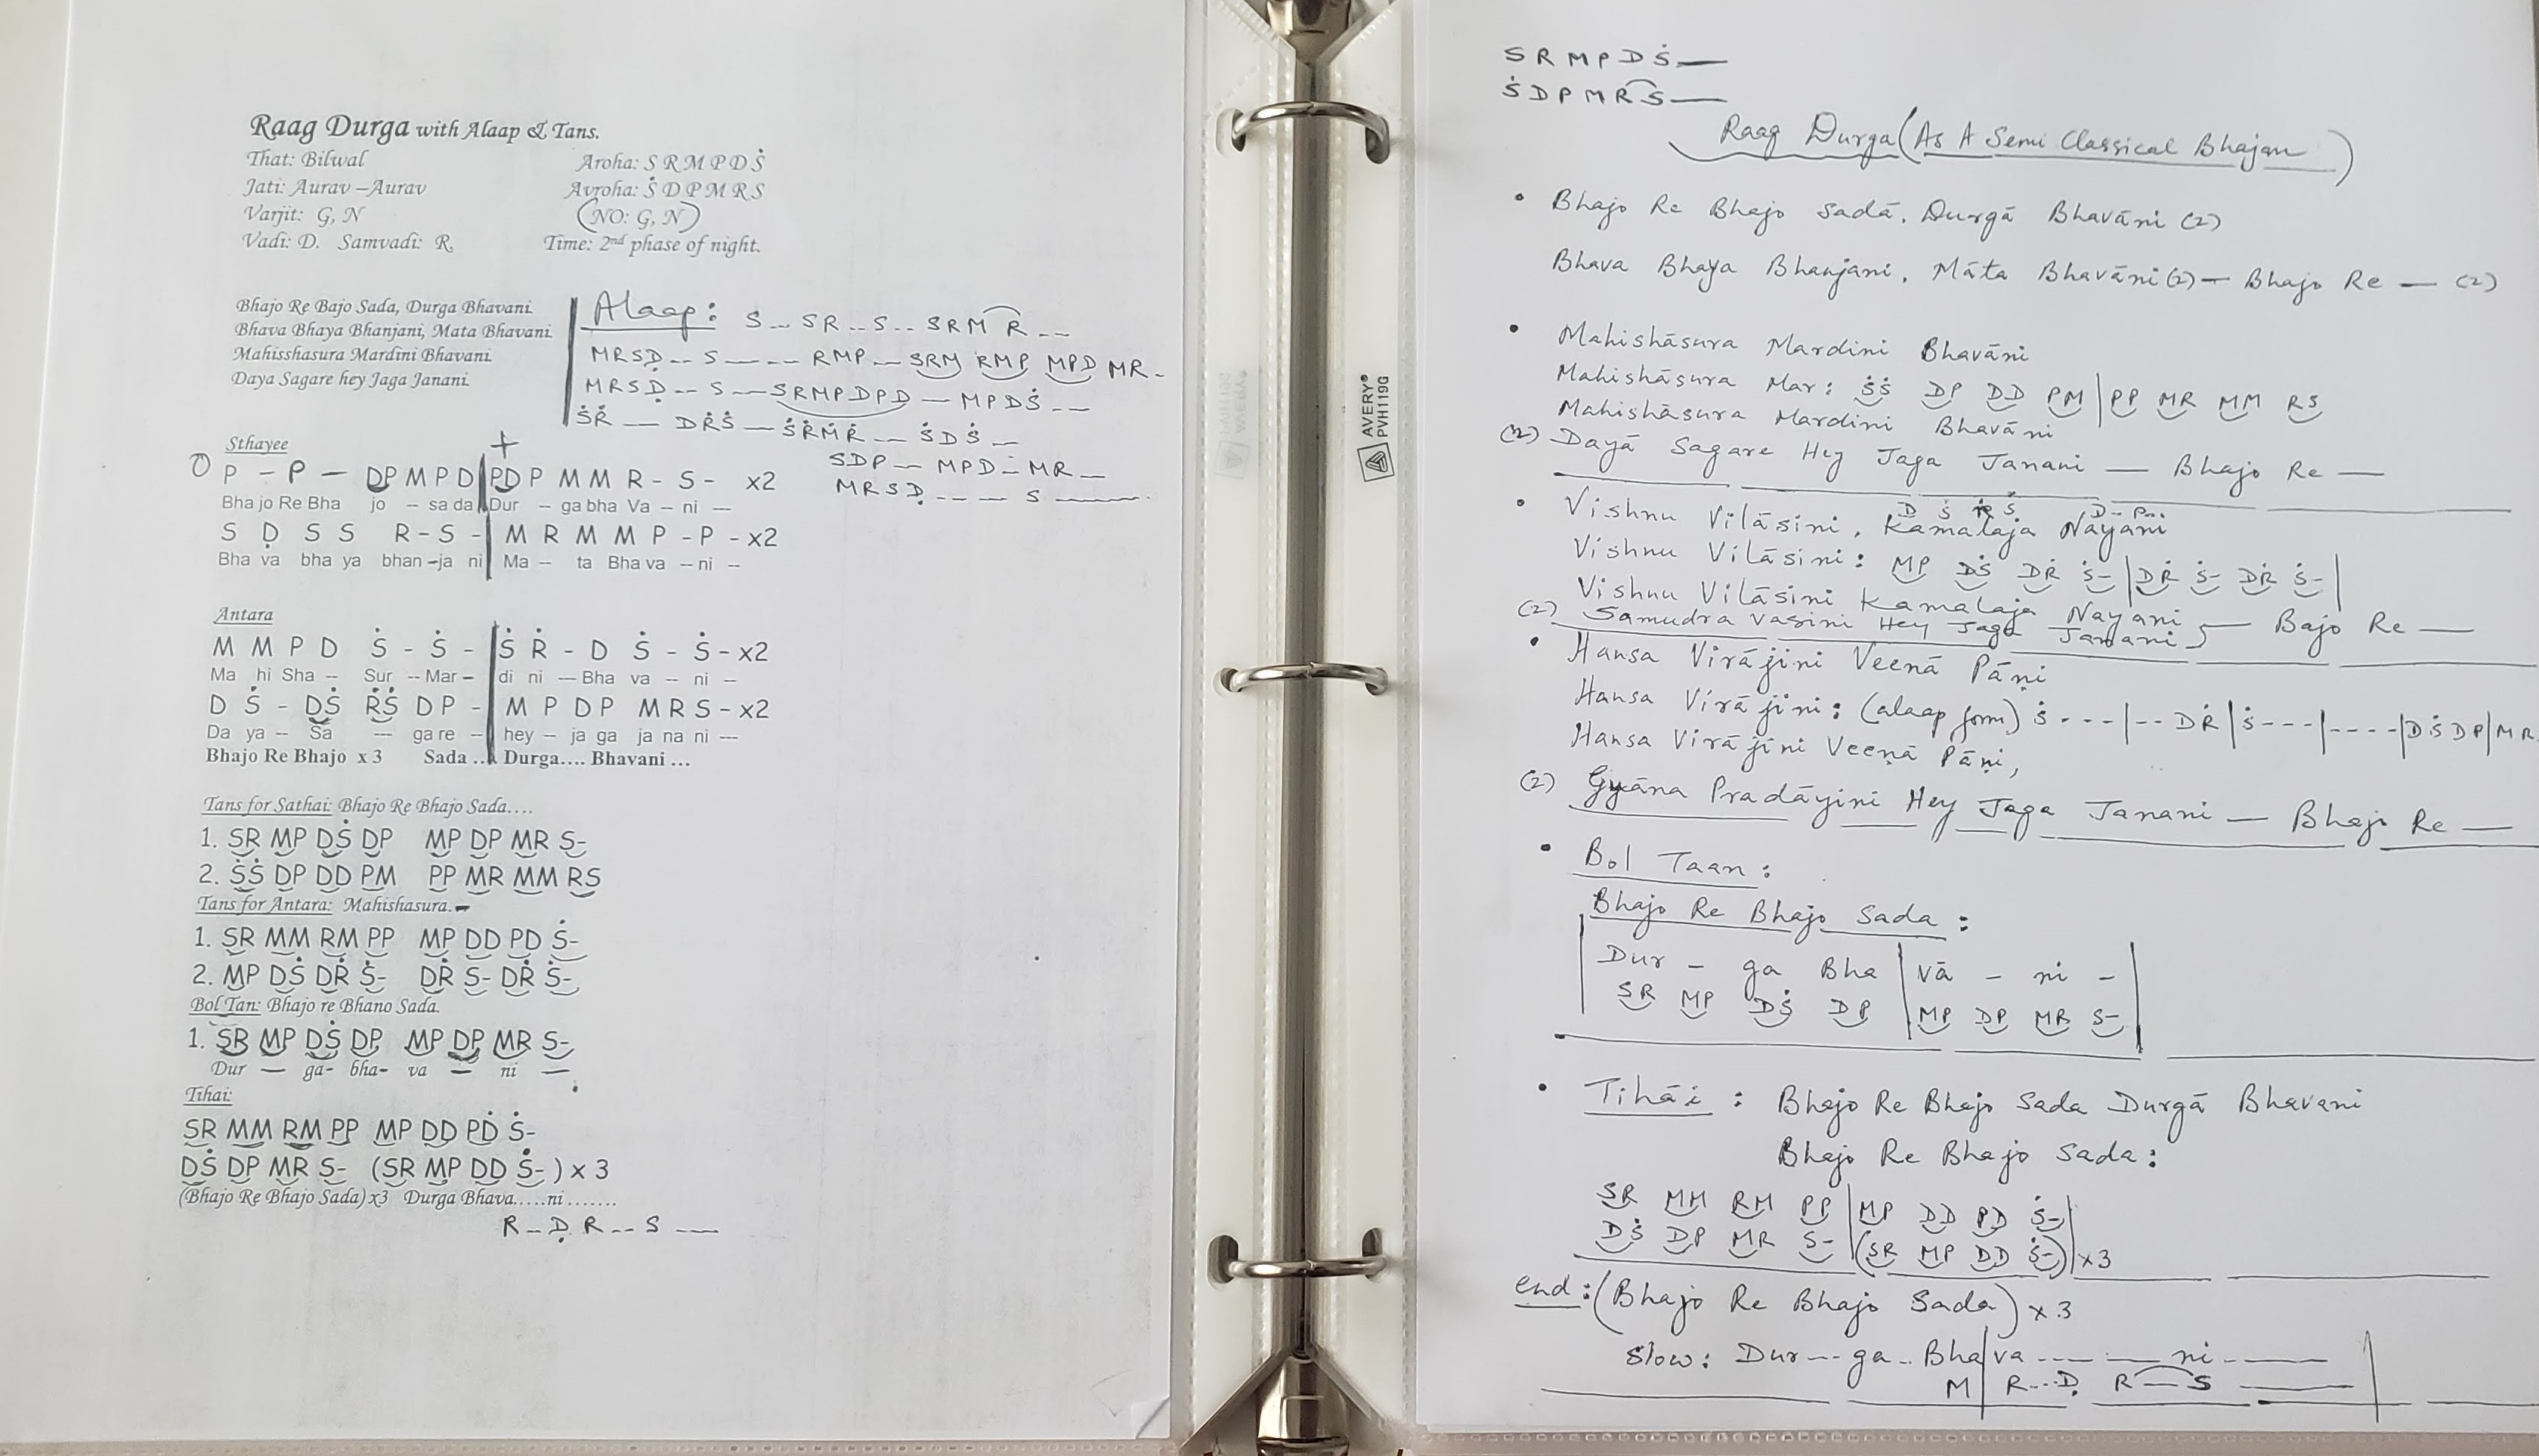 Raag Durga with Alaap & Tans.
That: Bilwal
Aroha: S R M P D Ṡ
Jati: Aurav –Aurav
Avroha: Ṡ D P M R S
Varjit: G, N
(NO: G, N)
Vadi: D. Samvadi: R.
Time: 2nd phase of night.
Bhajo Re Bajo Sada, Durga Bhavani.
Bhava Bhaya Bhanjani, Mata Bhavani.
Mahisshasura Mardini Bhavani.
Daya Sagare hey Jaga Janani.
Alaap: S -- SR -- S -- SRM R --
MRSḌ -- S ---- RMP -- SRM RMP MPD MR -
MRSḌ -- S -- SRMPDPD — MPDṠ --
ṠṘ — DṘṠ — ṠṘṀṘ -- ṠDṠ --
SDP -- MPD -- MR --
MRSḌ ---- S ——
Sthayee
+
O P – P – DP M P D | PD P M M R - S - x2
Bha jo Re Bha jo -- sa da | Dur -- ga bha Va -- ni ---
S Ḍ S S R - S - | M R M M P - P - x2
Bha va bha ya bhan –ja ni | Ma -- ta Bha va -- ni --
Antara
M M P D Ṡ - Ṡ - | Ṡ Ṙ - D Ṡ - Ṡ - x2
Ma hi Sha -- Sur -- Mar – | di ni --- Bha va -- ni --
D Ṡ - DṠ ṘṠ DP - | M P DP MRS - x2
Da ya -- Sa --- ga re -- | hey -- ja ga ja na ni ---
Bhajo Re Bhajo x 3 Sada ... Durga.... Bhavani ...
Tans for Sathai: Bhajo Re Bhajo Sada....
1. SR MP DṠ DP MP DP MR S-
2. ṠṠ DP DD PM PP MR MM RS
Tans for Antara: Mahishasura.–
1. SR MM RM PP MP DD PD Ṡ-
2. MP DṠ DṘ Ṡ- DṘ Ṡ- DṘ Ṡ-
Bol Tan: Bhajo re Bhano Sada.
1. SR MP DṠ DP MP DP MR S-
Dur — ga- bha- va — ni —
Tihai:
SR MM RM PP MP DD PD Ṡ-
DṠ DP MR S- (SR MP DD Ṡ- ) x 3
(Bhajo Re Bhajo Sada) x3 Durga Bhava.....ni .......
R -- Ḍ R -- S ——
AVERY®
PVH119G
S R M P D Ṡ —
Ṡ D P M R S —
Raag Durga (As A Semi Classical Bhajan)
• Bhajo Re Bhajo Sadā, Durgā Bhavāni (2)
Bhava Bhaya Bhanjani, Māta Bhavāni (2) — Bhajo Re — (2)
• Mahishāsura Mardini Bhavāni
Mahishāsura Mar: ṠṠ DP DD PM | PP MR MM RS
Mahishāsura Mardini Bhavāni
(2) Dayā Sagare Hey Jaga Janani — Bhajo Re —
D Ṡ Ṙ Ṡ D - P..
• Vishnu Vilāsini, Kamalaja Nayani
Vishnu Vilāsini: MP DṠ DṘ Ṡ- | DṘ Ṡ- DṘ Ṡ- |
Vishnu Vilāsini Kamalaja Nayani
(2) Samudra Vasini Hey Jaga Janani — Bajo Re —
• Hansa Virājini Veenā Pāṇi
Hansa Virājini: (alaap form) Ṡ - - - | - - DṘ | Ṡ - - - | - - - - | DṠDP | MR
Hansa Virājini Veeṇā Pāṇi,
(2) Gyāna Pradāyini Hey Jaga Janani — Bhajo Re —
• Bol Taan:
Bhajo Re Bhajo Sada:
| Dur – ga Bha | vā – ni – |
| SR MP DṠ DP | MP DP MR S- |
• Tihāi: Bhajo Re Bhajo Sada Durgā Bhavani
Bhajo Re Bhajo Sada:
SR MM RM PP | MP DD PD Ṡ- |
DṠ DP MR S- | (SR MP DD Ṡ-) | x3
end: (Bhajo Re Bhajo Sada) x 3
Slow: Dur --- ga -- Bha | va --- — ni - —— |
M | R --- Ḍ R — S ——